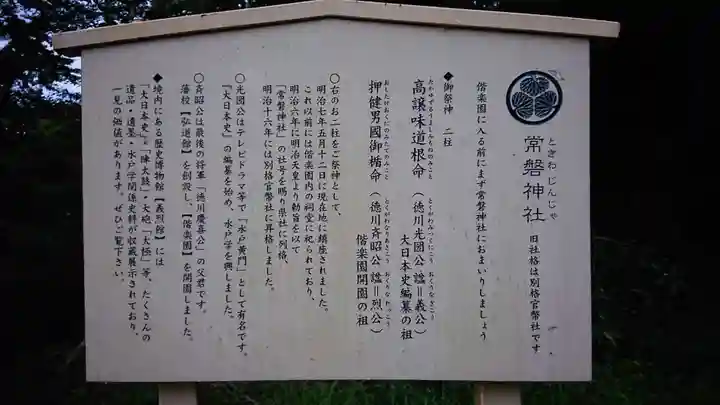 ときわ じんじゃ
常磐神社 旧社格は別格官幣社です
偕楽園に入る前にまず常磐神社におまいりしましょう
◆御祭神 二柱
たかゆずるうましみちねのみこと とくがわみつくにこう おくりなぎこう
高譲味道根命(徳川光圀公諡=義公)
大日本史編纂の祖
おしたけおくにのみたてのみこと とくがわなりあきこう おくりなれっこう
押健男國御楯命(徳川斉昭公諡=烈公)
偕楽園開園の祖
○右のお二柱をご祭神として、
明治七年五月十二日に現在地に鎮座されました。
これ以前には偕楽園内の祠堂に祀られており、
明治六年に明治天皇より勅旨を以て
『常磐神社』の社号を賜り県社に列格、
明治十六年には別格官幣社に昇格しました。
○光圀公はテレビドラマ等で「水戸黄門」として有名です。
『大日本史』の編纂を始め、水戸学を興しました。
○斉昭公は最後の将軍「徳川慶喜公」の父君です。
藩校【弘道館】を創設し、【偕楽園】を開園しました。
◆境内にある歴史博物館【義烈館】には
『大日本史』・「陣太鼓」・大砲「太極」等、たくさんの
遺品・遺墨・水戸学関係史料が収蔵展示されており、
一見の価値があります。ぜひご覧下さい。